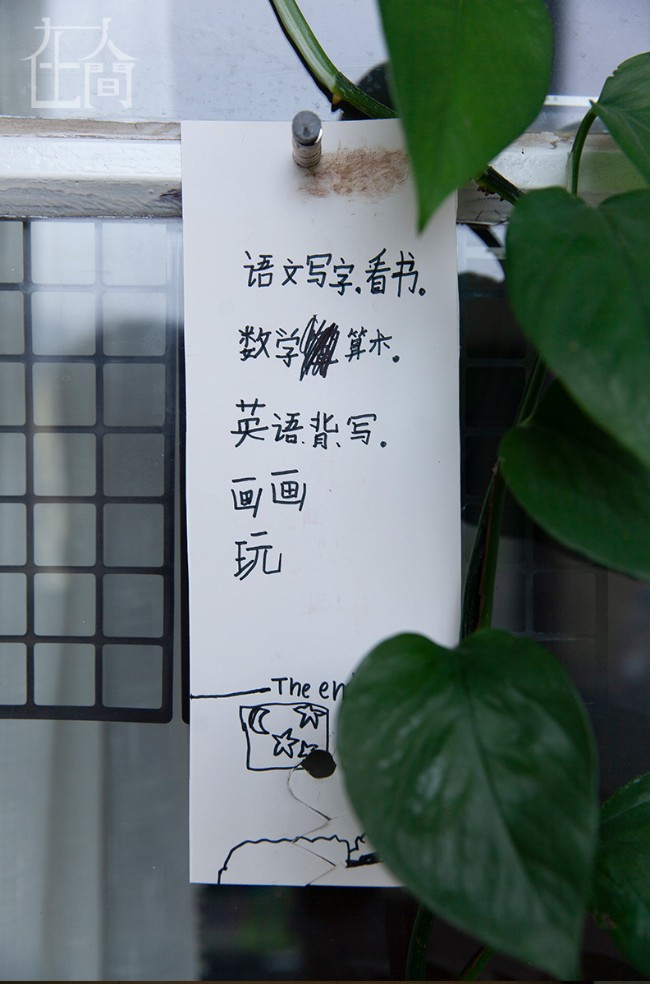 在人間
语文写字.看书.
数学 算术.
英语.背.写.
画画
玩
The en